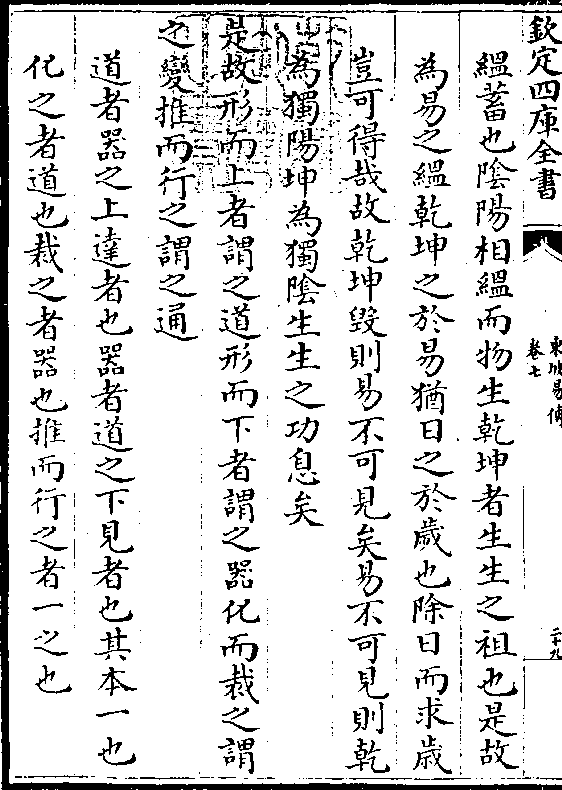 欽定四庫全書
東坡易傳
卷七
二十九
縕蓄也陰陽相縕而物生乾坤者生生之祖也是故
為易之縕乾坤之於易猶日之於歲也除日而求歲
豈可得哉故乾坤毀則易不可見矣易不可見則乾
為獨陽坤為獨陰生生之功息矣
是故形而上者謂之道形而下者謂之器化而裁之謂
之變推而行之謂之通
道者器之上達者也器者道之下見者也其本一也
化之者道也裁之者器也推而行之者一之也